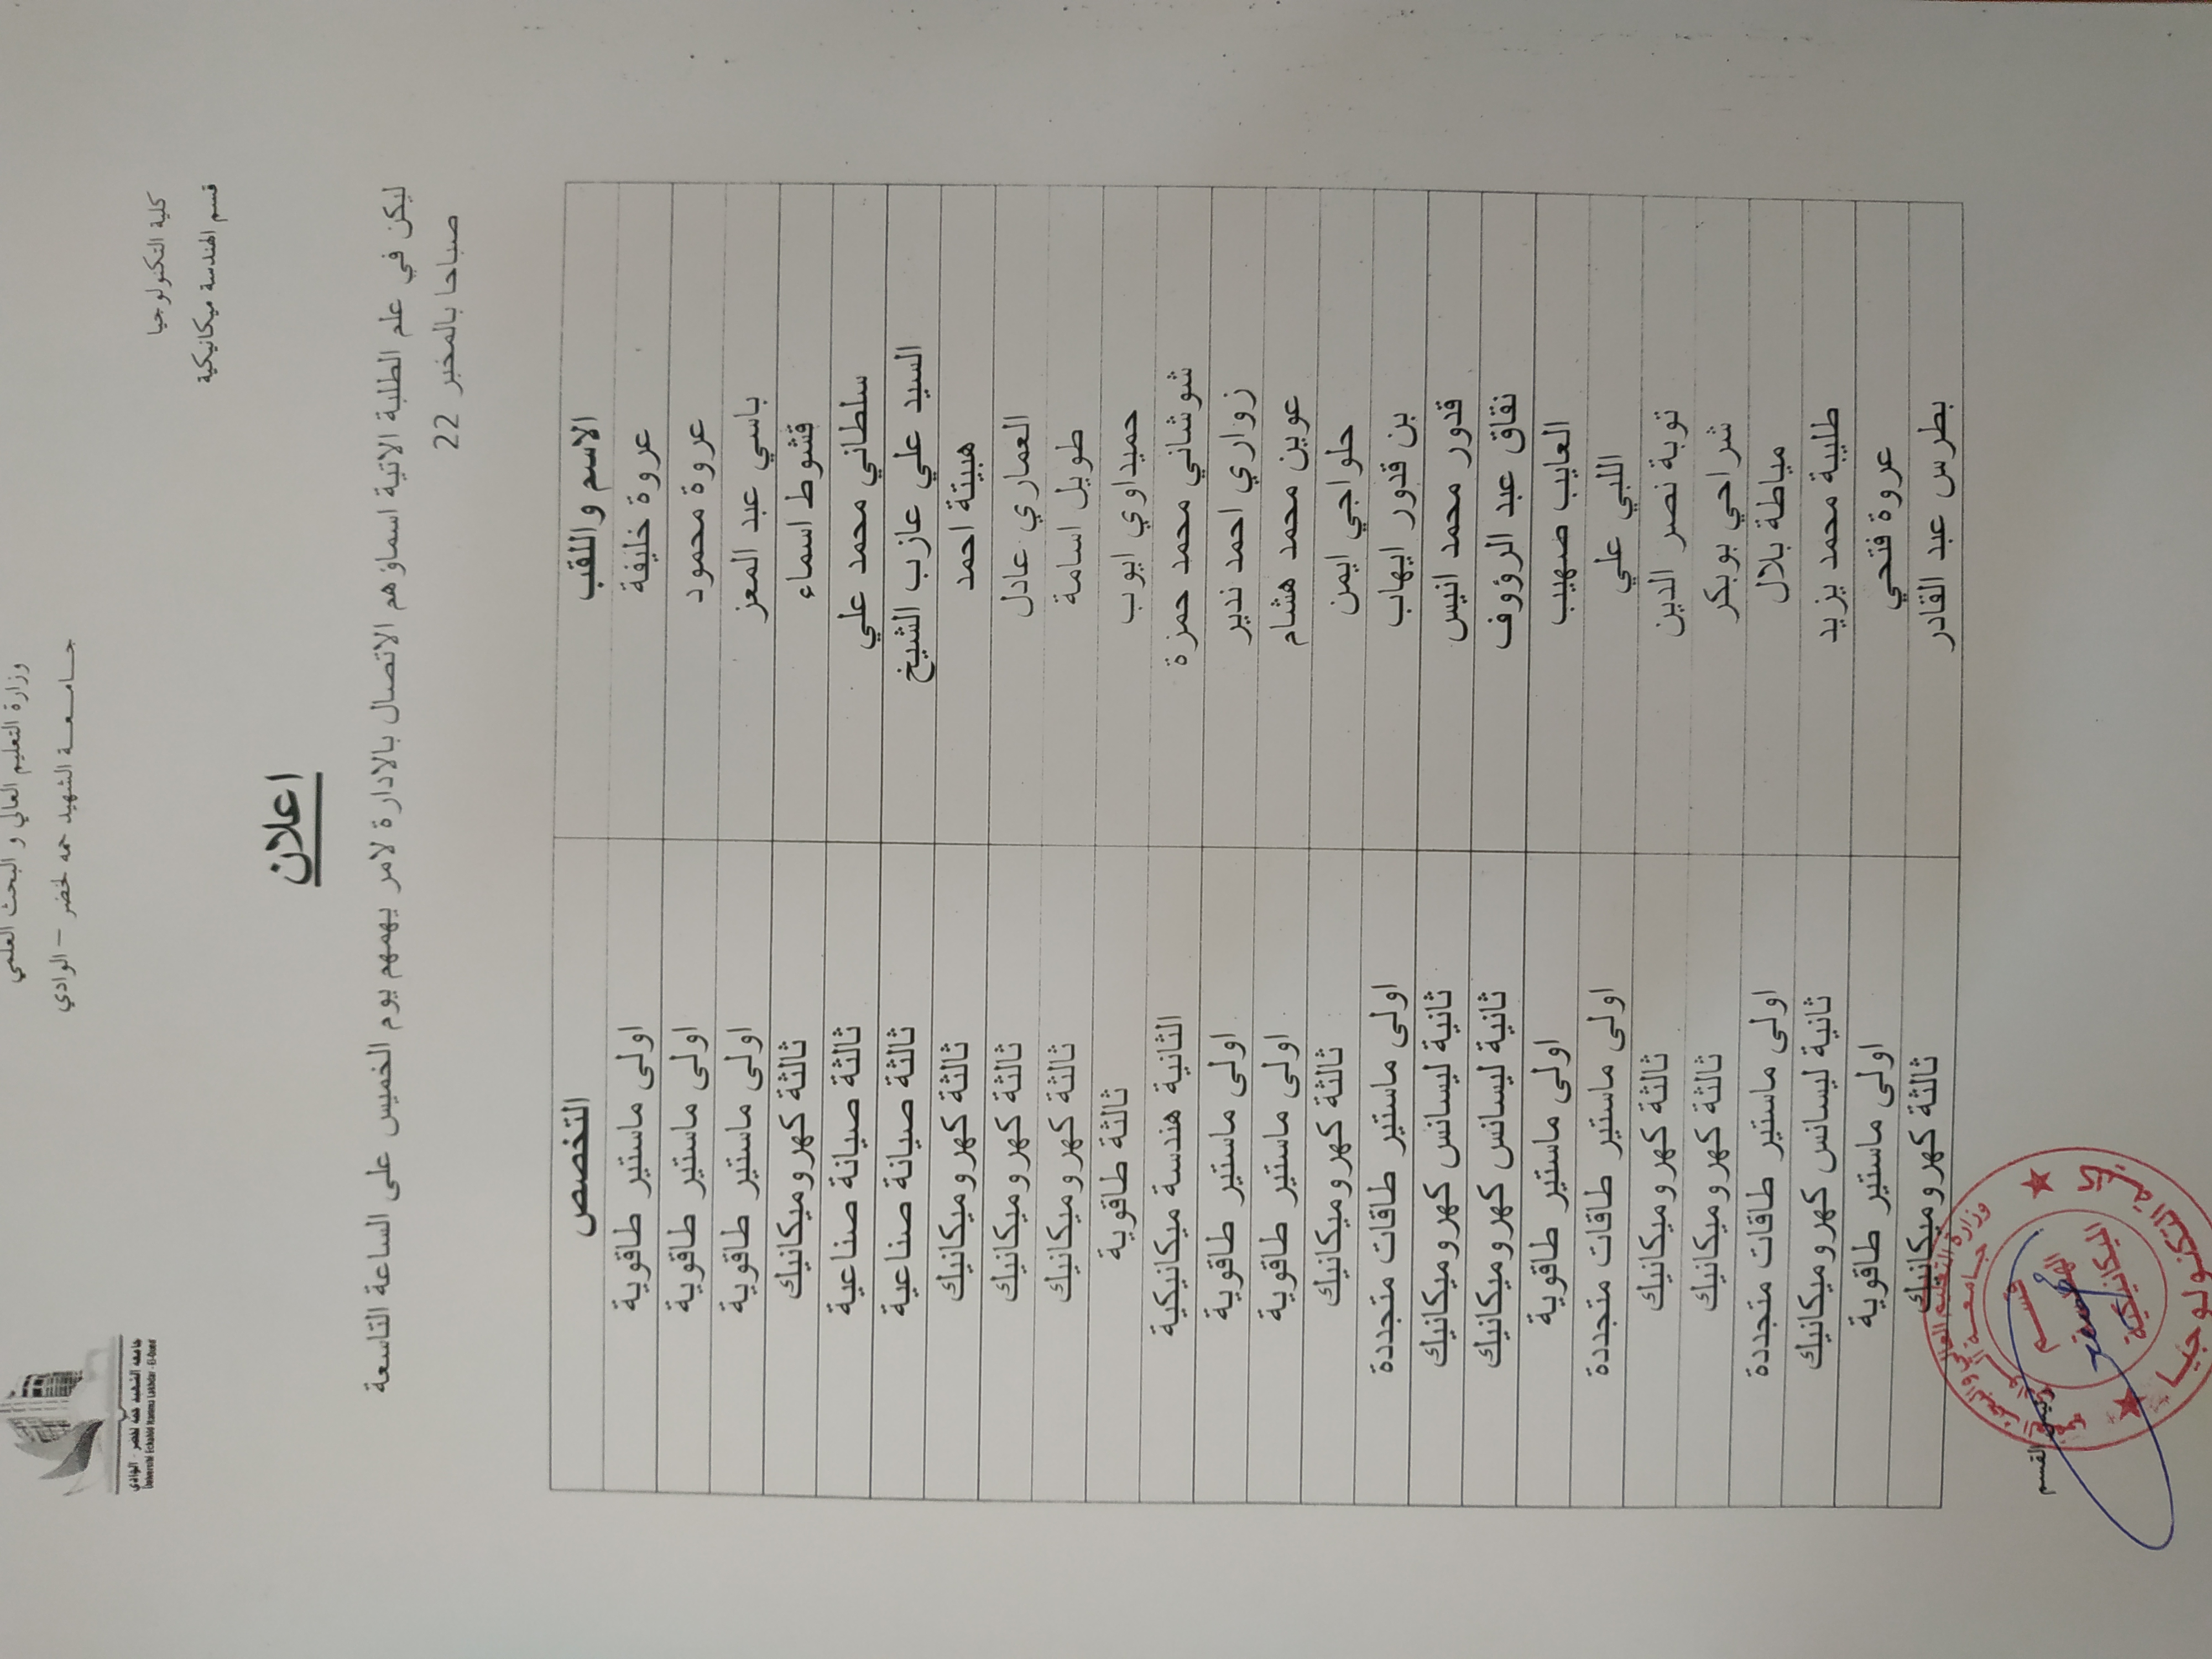 وزارة التعليم العالي و البحث العلمي
جـــامـــعـــة الشهيد حمه لخضر – الوادي
جامعة الشهيد حمه لخضر - الوادي
Université Echahid Hamma Lakhdar - El-Oued
كلية التكنولوجيا
قسم الهندسة ميكانيكية
اعلان
ليكن في علم الطلبة الاتية اسماؤهم الاتصال بالادارة لامر يهمهم يوم الخميس على الساعة التاسعة
صباحا بالمخبر 22
الاسم واللقب التخصص
عروة خليفة اولى ماستير طاقوية
عروة محمود اولى ماستير طاقوية
باسي عبد المعز اولى ماستير طاقوية
قشوط اسماء ثالثة كهروميكانيك
سلطاني محمد علي ثالثة صيانة صناعية
السيد علي عازب الشيخ ثالثة صيانة صناعية
هبيتة احمد ثالثة كهروميكانيك
العماري عادل ثالثة كهروميكانيك
طويل اسامة ثالثة كهروميكانيك
حميداوي ايوب ثالثة طاقوية
شوشاني محمد حمزة الثانية هندسة ميكانيكية
زواري احمد نذير اولى ماستير طاقوية
عوين محمد هشام اولى ماستير طاقوية
حلواجي ايمن ثالثة كهروميكانيك
بن قدور ايهاب اولى ماستير طاقات متجددة
قدور محمد انيس ثانية ليسانس كهروميكانيك
نقاق عبد الرؤوف ثانية ليسانس كهروميكانيك
العايب صهيب اولى ماستير طاقوية
اللبي علي اولى ماستير طاقات متجددة
توبة نصر الدين ثالثة كهروميكانيك
شراحي بوبكر ثالثة كهروميكانيك
مياطة بلال اولى ماستير طاقات متجددة
طليبة محمد يزيد ثانية ليسانس كهروميكانيك
عروة فتحي اولى ماستير طاقوية
بطرس عبد القادر ثالثة كهروميكانيك
رئيس القسم
وزارة التعليم العالي والبحث
جامعة
كلية التكنولوجيا
قسم
الهندسة
الميكانيكية